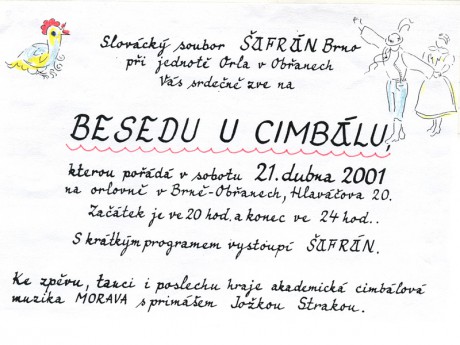 Slovácký soubor ŠAFRÁN Brno
při jednotě Orla v Obřanech
Vás srdečně zve na
BESEDU U CIMBÁLU,
kterou pořádá v sobotu 21. dubna 2001
na orlovně v Brně-Obřanech, Hlaváčova 20.
Začátek je ve 20 hod. a konec ve 24 hod..
S krátkým programem vystoupí ŠAFRÁN.
Ke zpěvu, tanci i poslechu hraje akademická cimbálová
muzika MORAVA s primášem Jožkou Strakou.